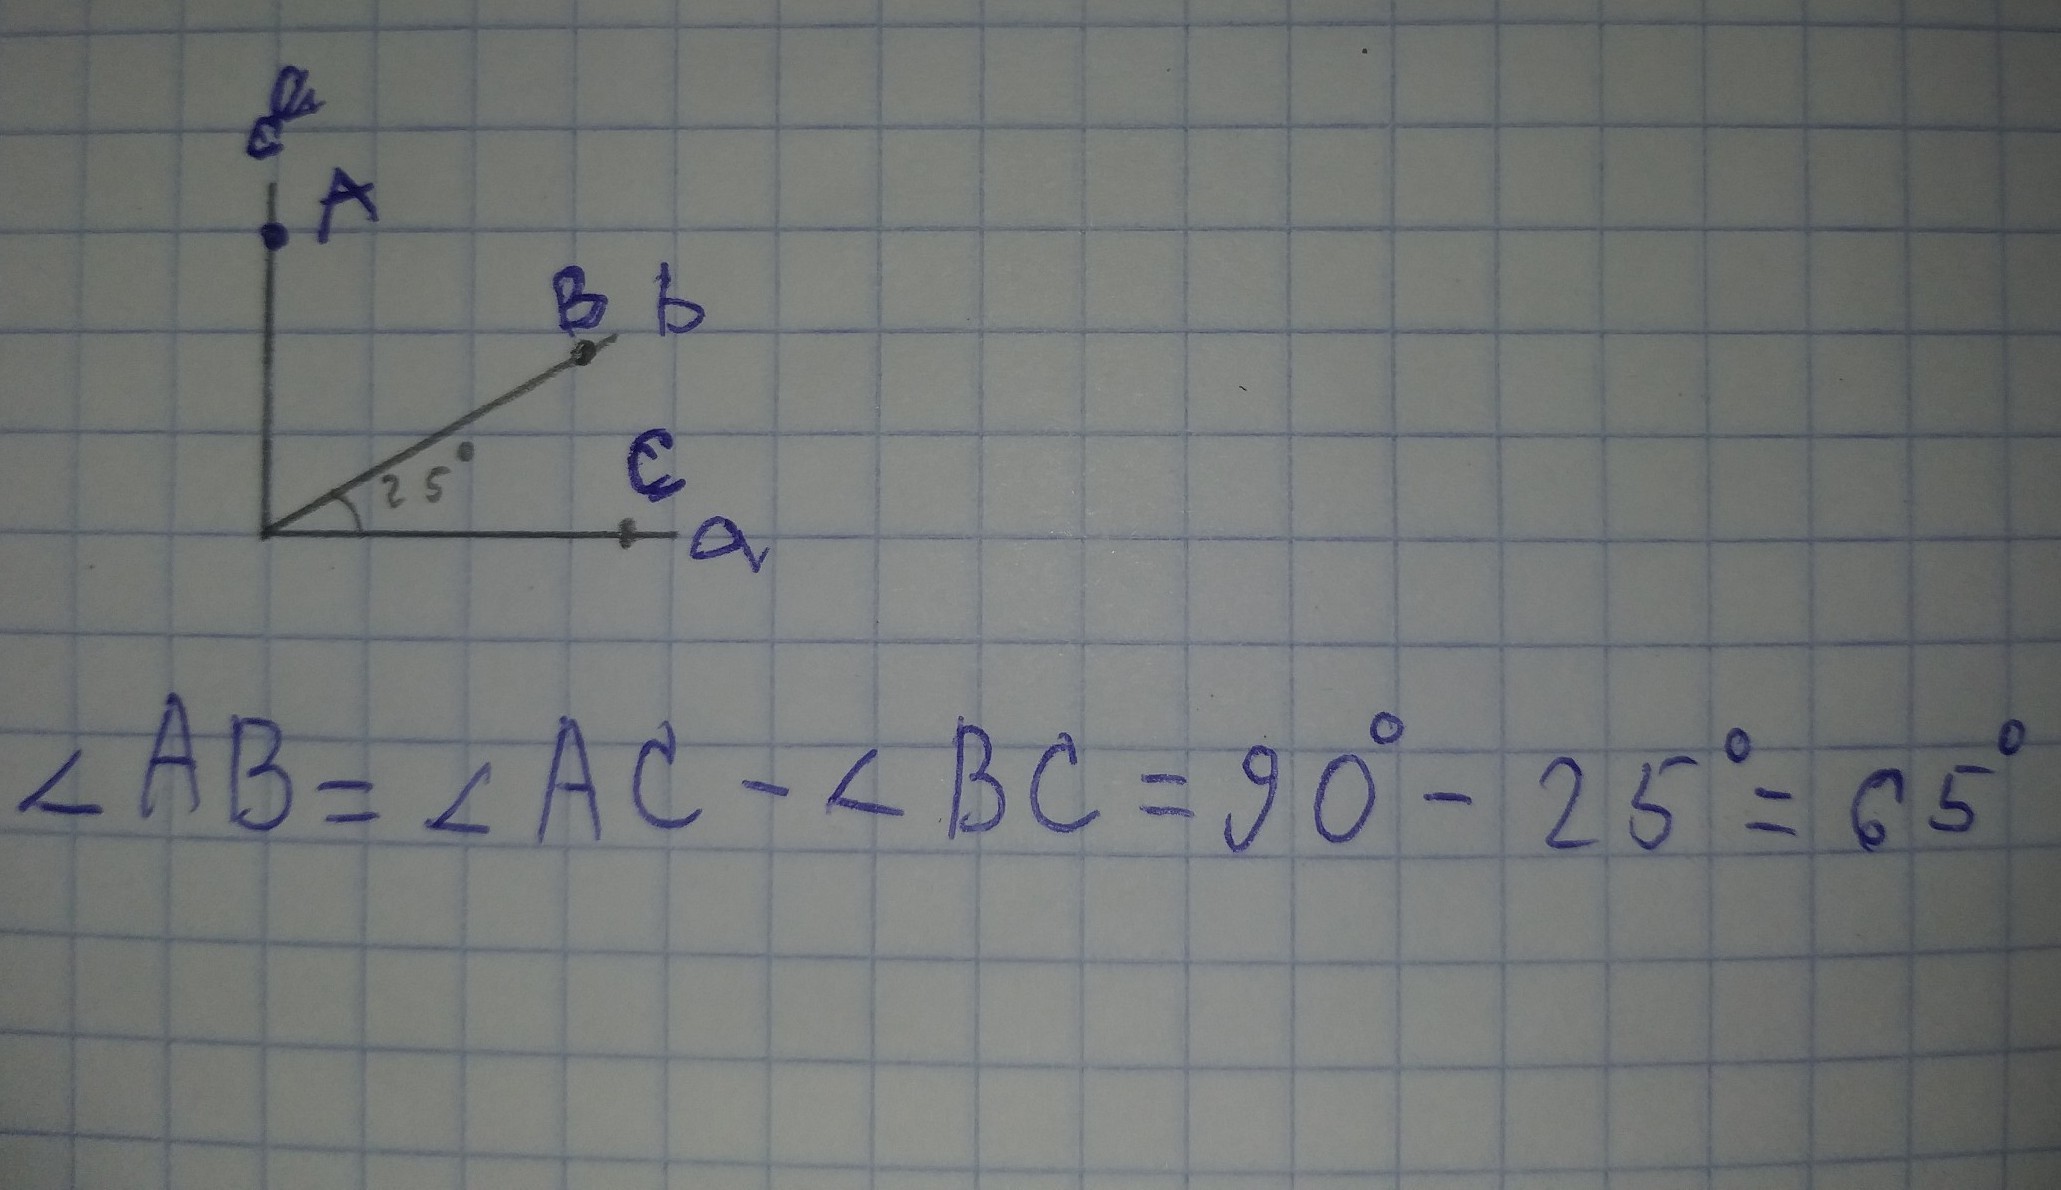 c
A
B b
25°
C
a
∠AB=∠AC-∠BC=90°-25°=65°